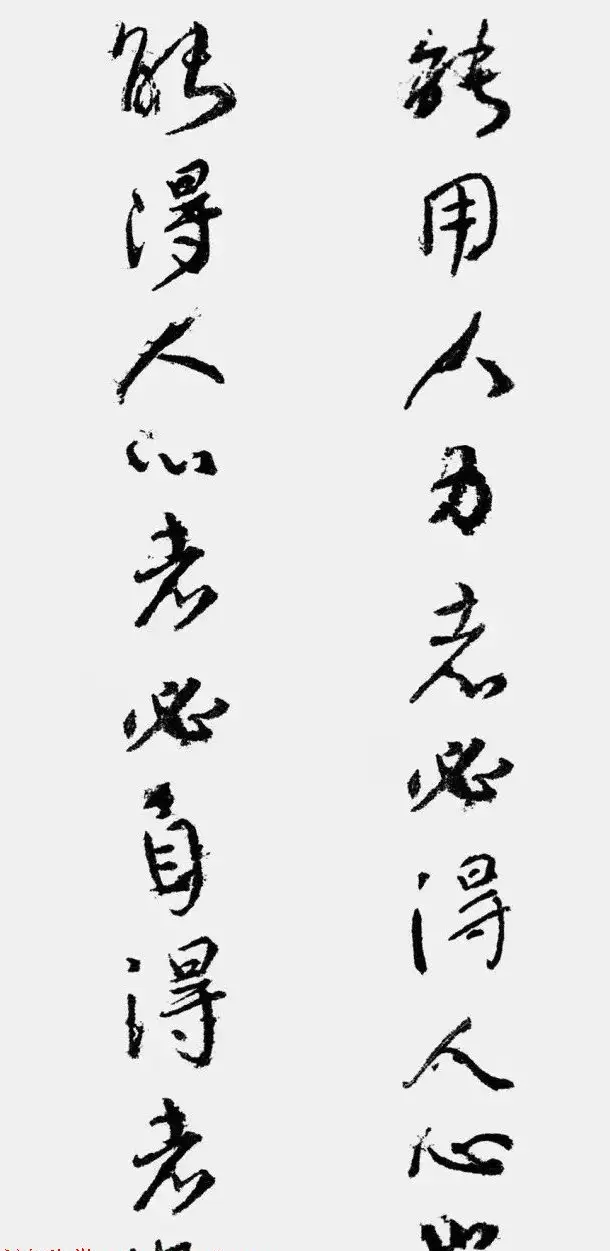 能用人力者必得人心
能得人心者必自得者